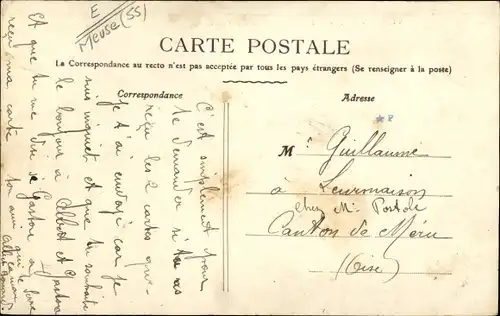 E
Meuse (55)
CARTE POSTALE
La Correspondance au recto n'est pas acceptée par tous les pays étrangers (Se renseigner à la poste)
Correspondance
Adresse
C'est simplement pour
te demander si tu as
reçu les 2 cartes que
je t'ai envoyé car je
suis inquiet et que tu souhaite
le bonjour à Albert et Gaston
Et que tu me dise si Gaston a
reçu ma carte ton ami qui te serre
la main
Mr Guillaume
à
chez Mr Postole
Canton de Méru
(Oise)